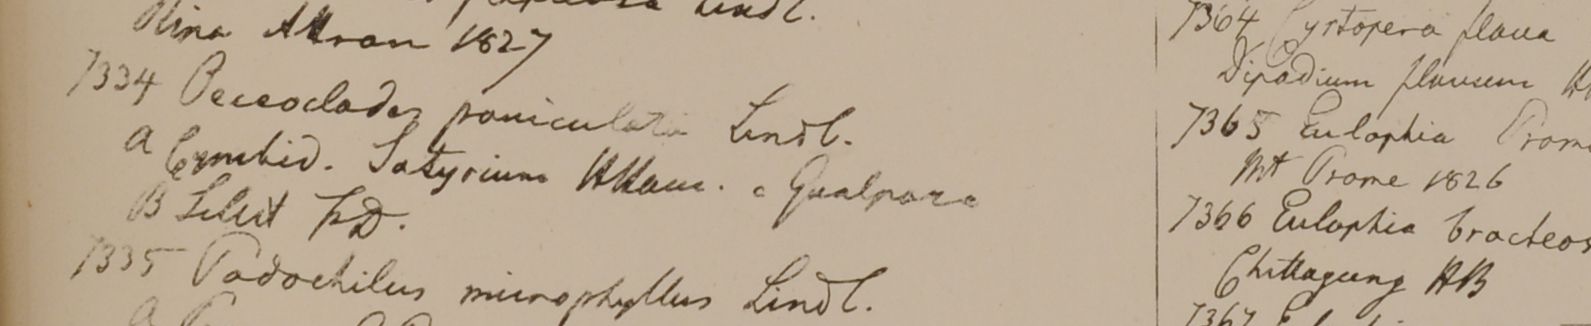 Lindl.
1827
7334 Oeceoclades paniculata Lindl.
a Cymbid. Satyrium HHam. e Gualpara
B Silhet FD.
7335 Podochilus microphyllus Lindl.
a
7364 Cyrtopera flava
Dipodium flavum
7365 Eulophia Prome
Mt Prome 1826
7366 Eulophia bracteos
Chittagung HB
7367